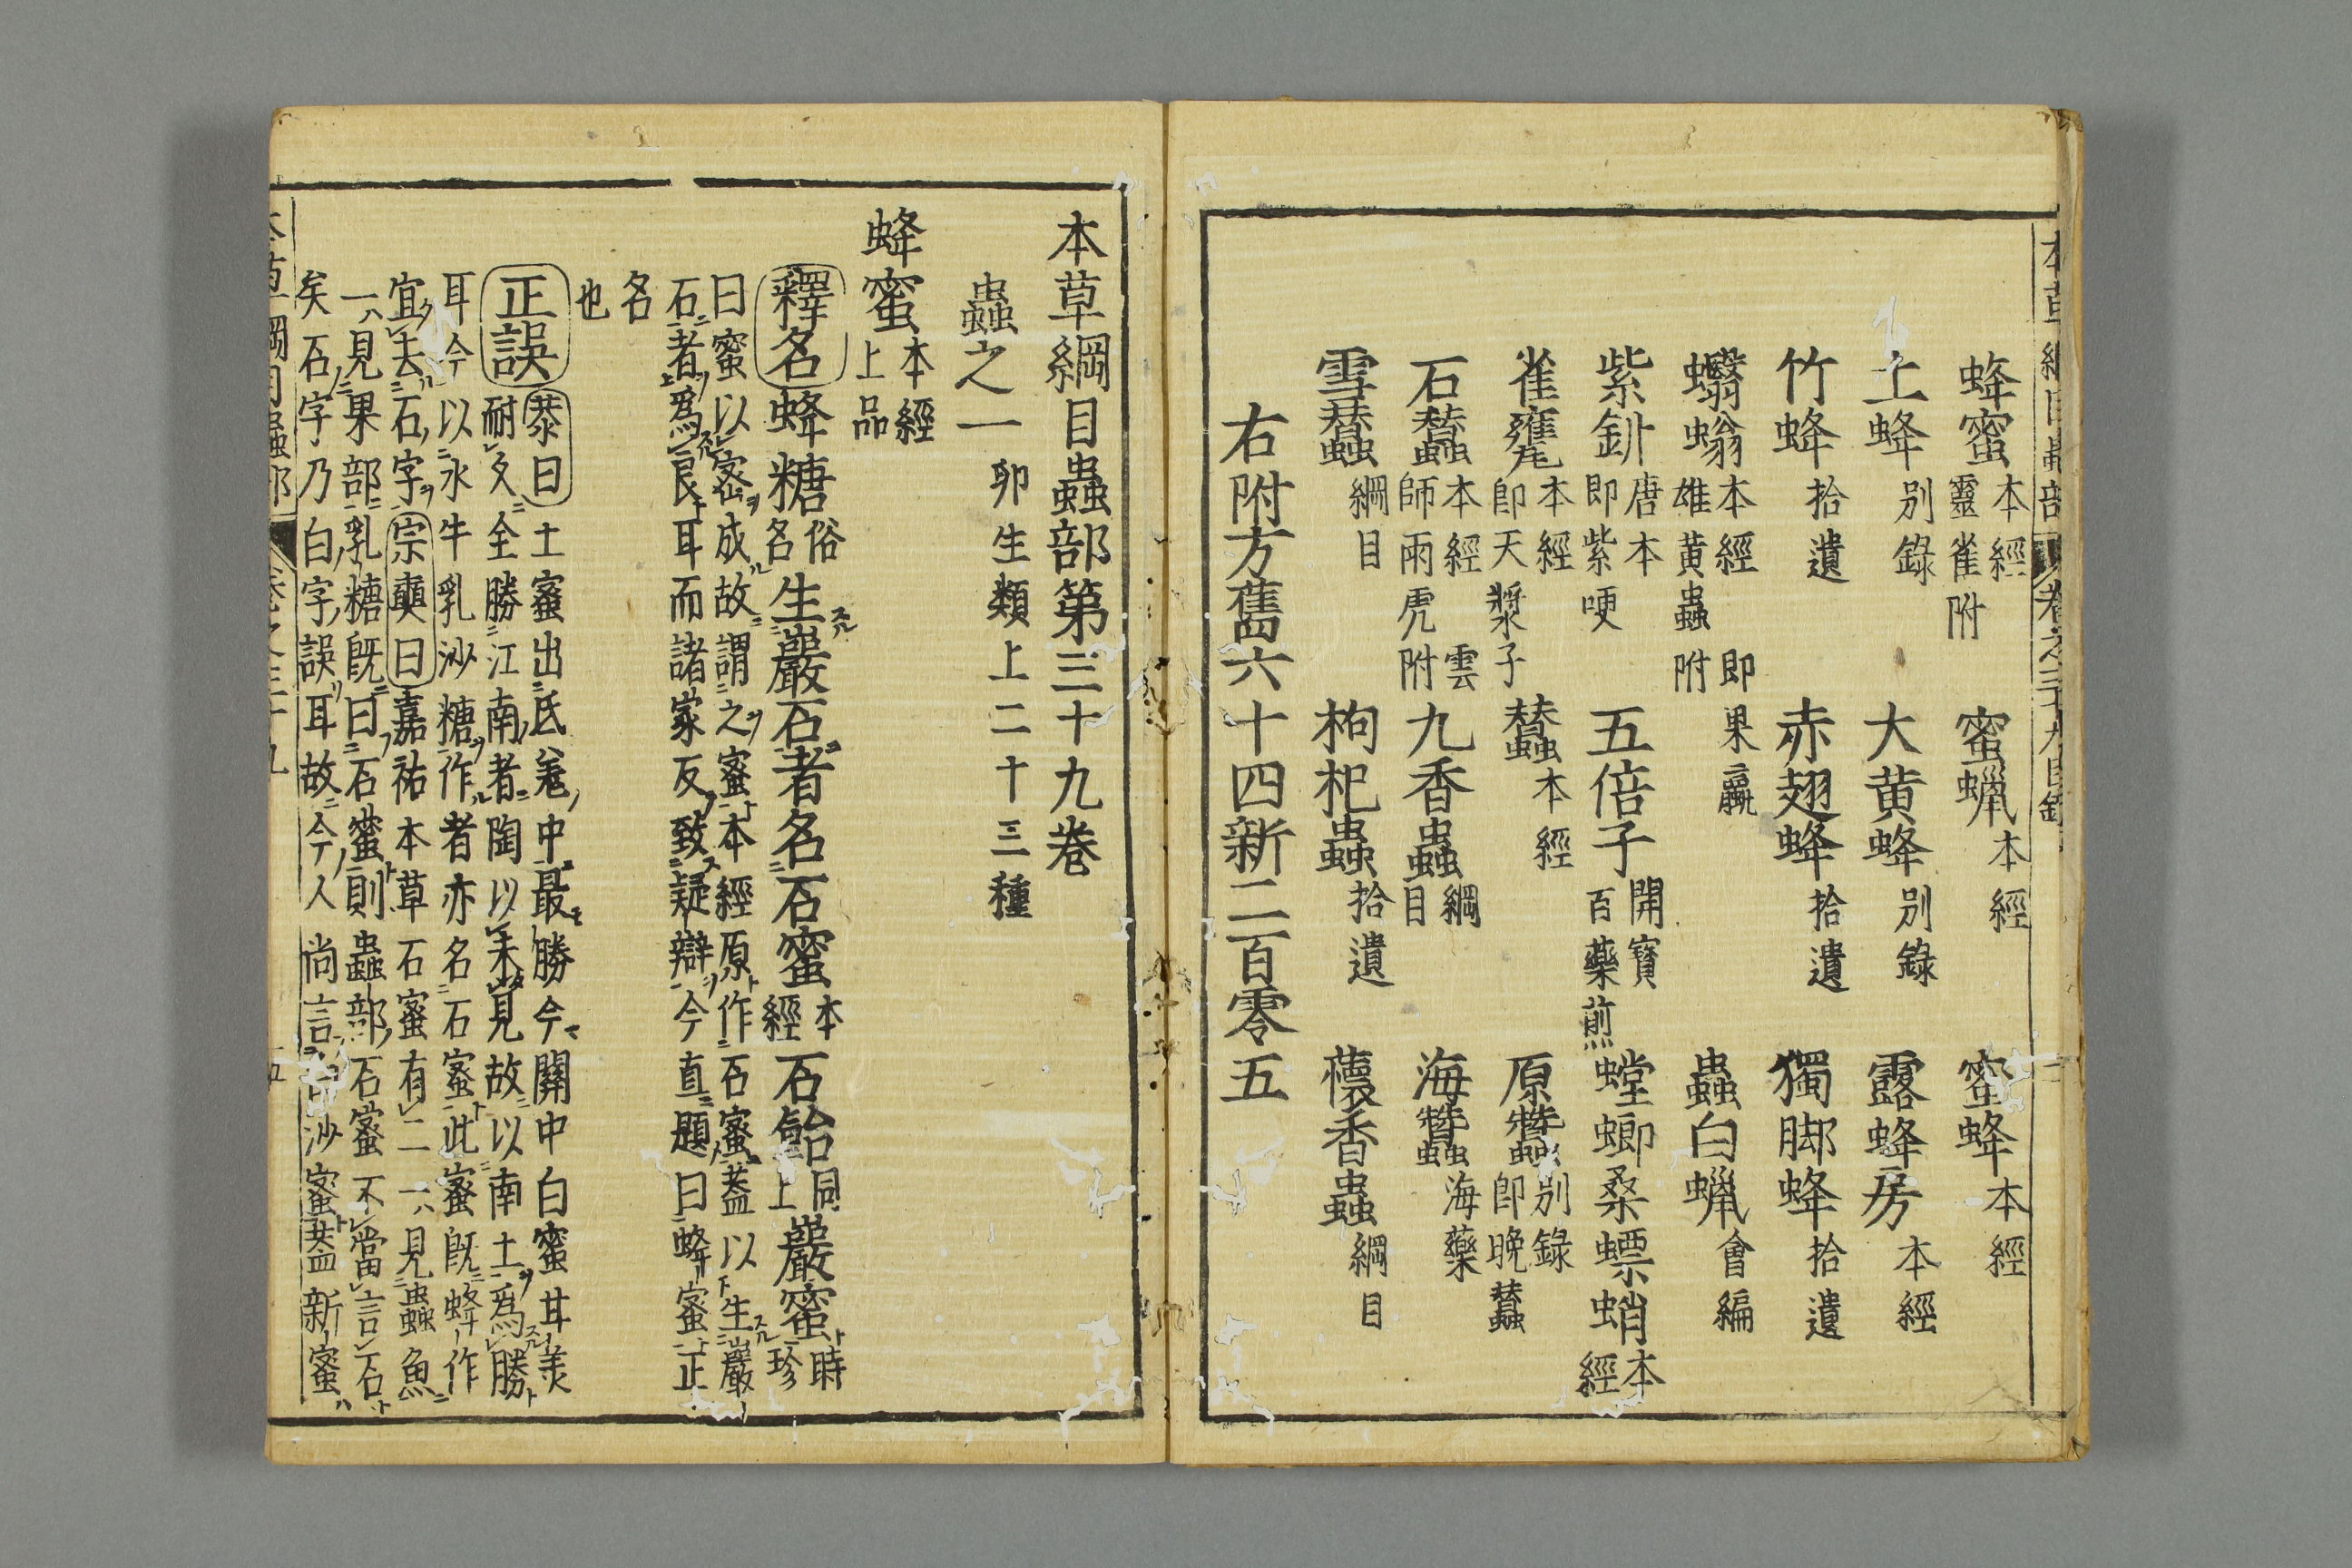 蜂蜜 本經 靈雀附 蜜蠟 本經 蜜蜂 本經
土蜂 別錄 大黃蜂 別錄 露蜂房 本經
竹蜂 拾遺 赤翅蜂 拾遺 獨脚蜂 拾遺
蠮螉 本經 即果蠃 雄黃蟲附 蟲白蠟 會編
紫釧 唐本 即紫哽 五倍子 開寶 百藥煎 螳螂桑螵蛸 本經
雀甕 本經 即天漿子 蠶 本經 原蠶 別錄 即晚蠶
石蠶 本經 雲師雨虎附 九香蟲 綱目 海蠶 海藥
雪蠶 綱目 枸杞蟲 拾遺 蘹香蟲 綱目
右附方舊六十四新二百零五
本草綱目蟲部第三十九卷
蟲之一 卵生類上二十三種
蜂蜜 本經上品
釋名 蜂糖 俗名 生巖石者名石蜜 本經 石飴 同上 巖蜜 時珍
曰蜜以密成故謂之蜜本經原作石蜜蓋以生巖
石者爲良耳而諸家反致疑辯今直題曰蜂蜜正
名
也
正誤 恭曰 土蜜出氐羗中最勝今關中白蜜甘美
耐久全勝江南者陶以未見故以南土爲勝
耳今以水牛乳沙糖作者亦名石蜜此蜜既蜂作
宜去石字 宗奭曰 嘉祐本草石蜜有二一見蟲魚
一見果部乳糖既曰石蜜則蟲部石蜜不當言石
矣石字乃白字誤耳故今人尚言白沙蜜蓋新蜜